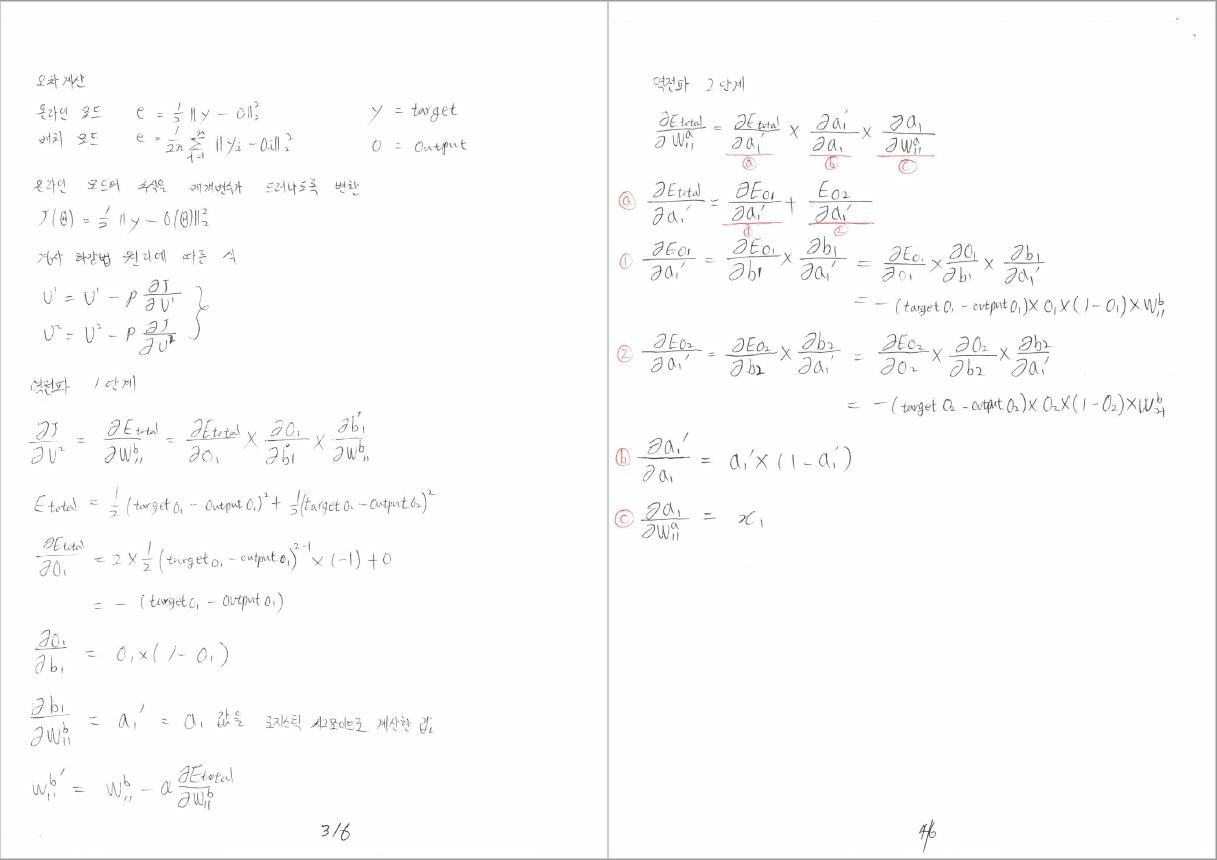 오차 계산
온라인 모드 e = ½ ||y - o||₂² y = target
배치 모드 e = 1/2n Σⁿᵢ₌₁ ||yi - oi||₂² o = output
온라인 모드의 수식은 매개변수가 드러나도록 변환
J(θ) = ½ ||y - o(θ)||₂²
경사 하강법 원리에 따른 식
U¹ = U¹ - ρ ∂J/∂U¹
U² = U² - ρ ∂J/∂U²
역전파 1단계
∂J/∂U² = ∂Etotal/∂W₁₁ᵇ = ∂Etotal/∂o₁ × ∂o₁/∂b₁ × ∂b₁/∂W₁₁ᵇ
Etotal = ½ (target o₁ - output o₁)² + ½ (target o₂ - output o₂)²
∂Etotal/∂o₁ = 2 × ½ (target o₁ - output o₁)²⁻¹ × (-1) + 0
= - (target o₁ - output o₁)
∂o₁/∂b₁ = o₁ × (1 - o₁)
∂b₁/∂W₁₁ᵇ = a₁' = a₁ 값을 로지스틱 시그모이드로 계산한 값
W₁₁ᵇ' = W₁₁ᵇ - α ∂Etotal/∂W₁₁ᵇ
3/6
역전파 2단계
∂Etotal/∂W₁₁ᵃ = ∂Etotal/∂a₁' × ∂a₁'/∂a₁ × ∂a₁/∂W₁₁ᵃ
ⓐ ⓑ ⓒ
ⓐ ∂Etotal/∂a₁' = ∂Eo₁/∂a₁' + Eo₂/∂a₁'
① ②
① ∂Eo₁/∂a₁' = ∂Eo₁/∂b₁ × ∂b₁/∂a₁' = ∂Eo₁/∂o₁ × ∂o₁/∂b₁ × ∂b₁/∂a₁'
= - (target o₁ - output o₁) × o₁ × (1 - o₁) × W₁₁ᵇ
② ∂Eo₂/∂a₁' = ∂Eo₂/∂b₂ × ∂b₂/∂a₁' = ∂Eo₂/∂o₂ × ∂o₂/∂b₂ × ∂b₂/∂a₁'
= - (target o₂ - output o₂) × o₂ × (1 - o₂) × W₂₁ᵇ
ⓑ ∂a₁'/∂a₁ = a₁' × (1 - a₁')
ⓒ ∂a₁/∂W₁₁ᵃ = x₁
4/6